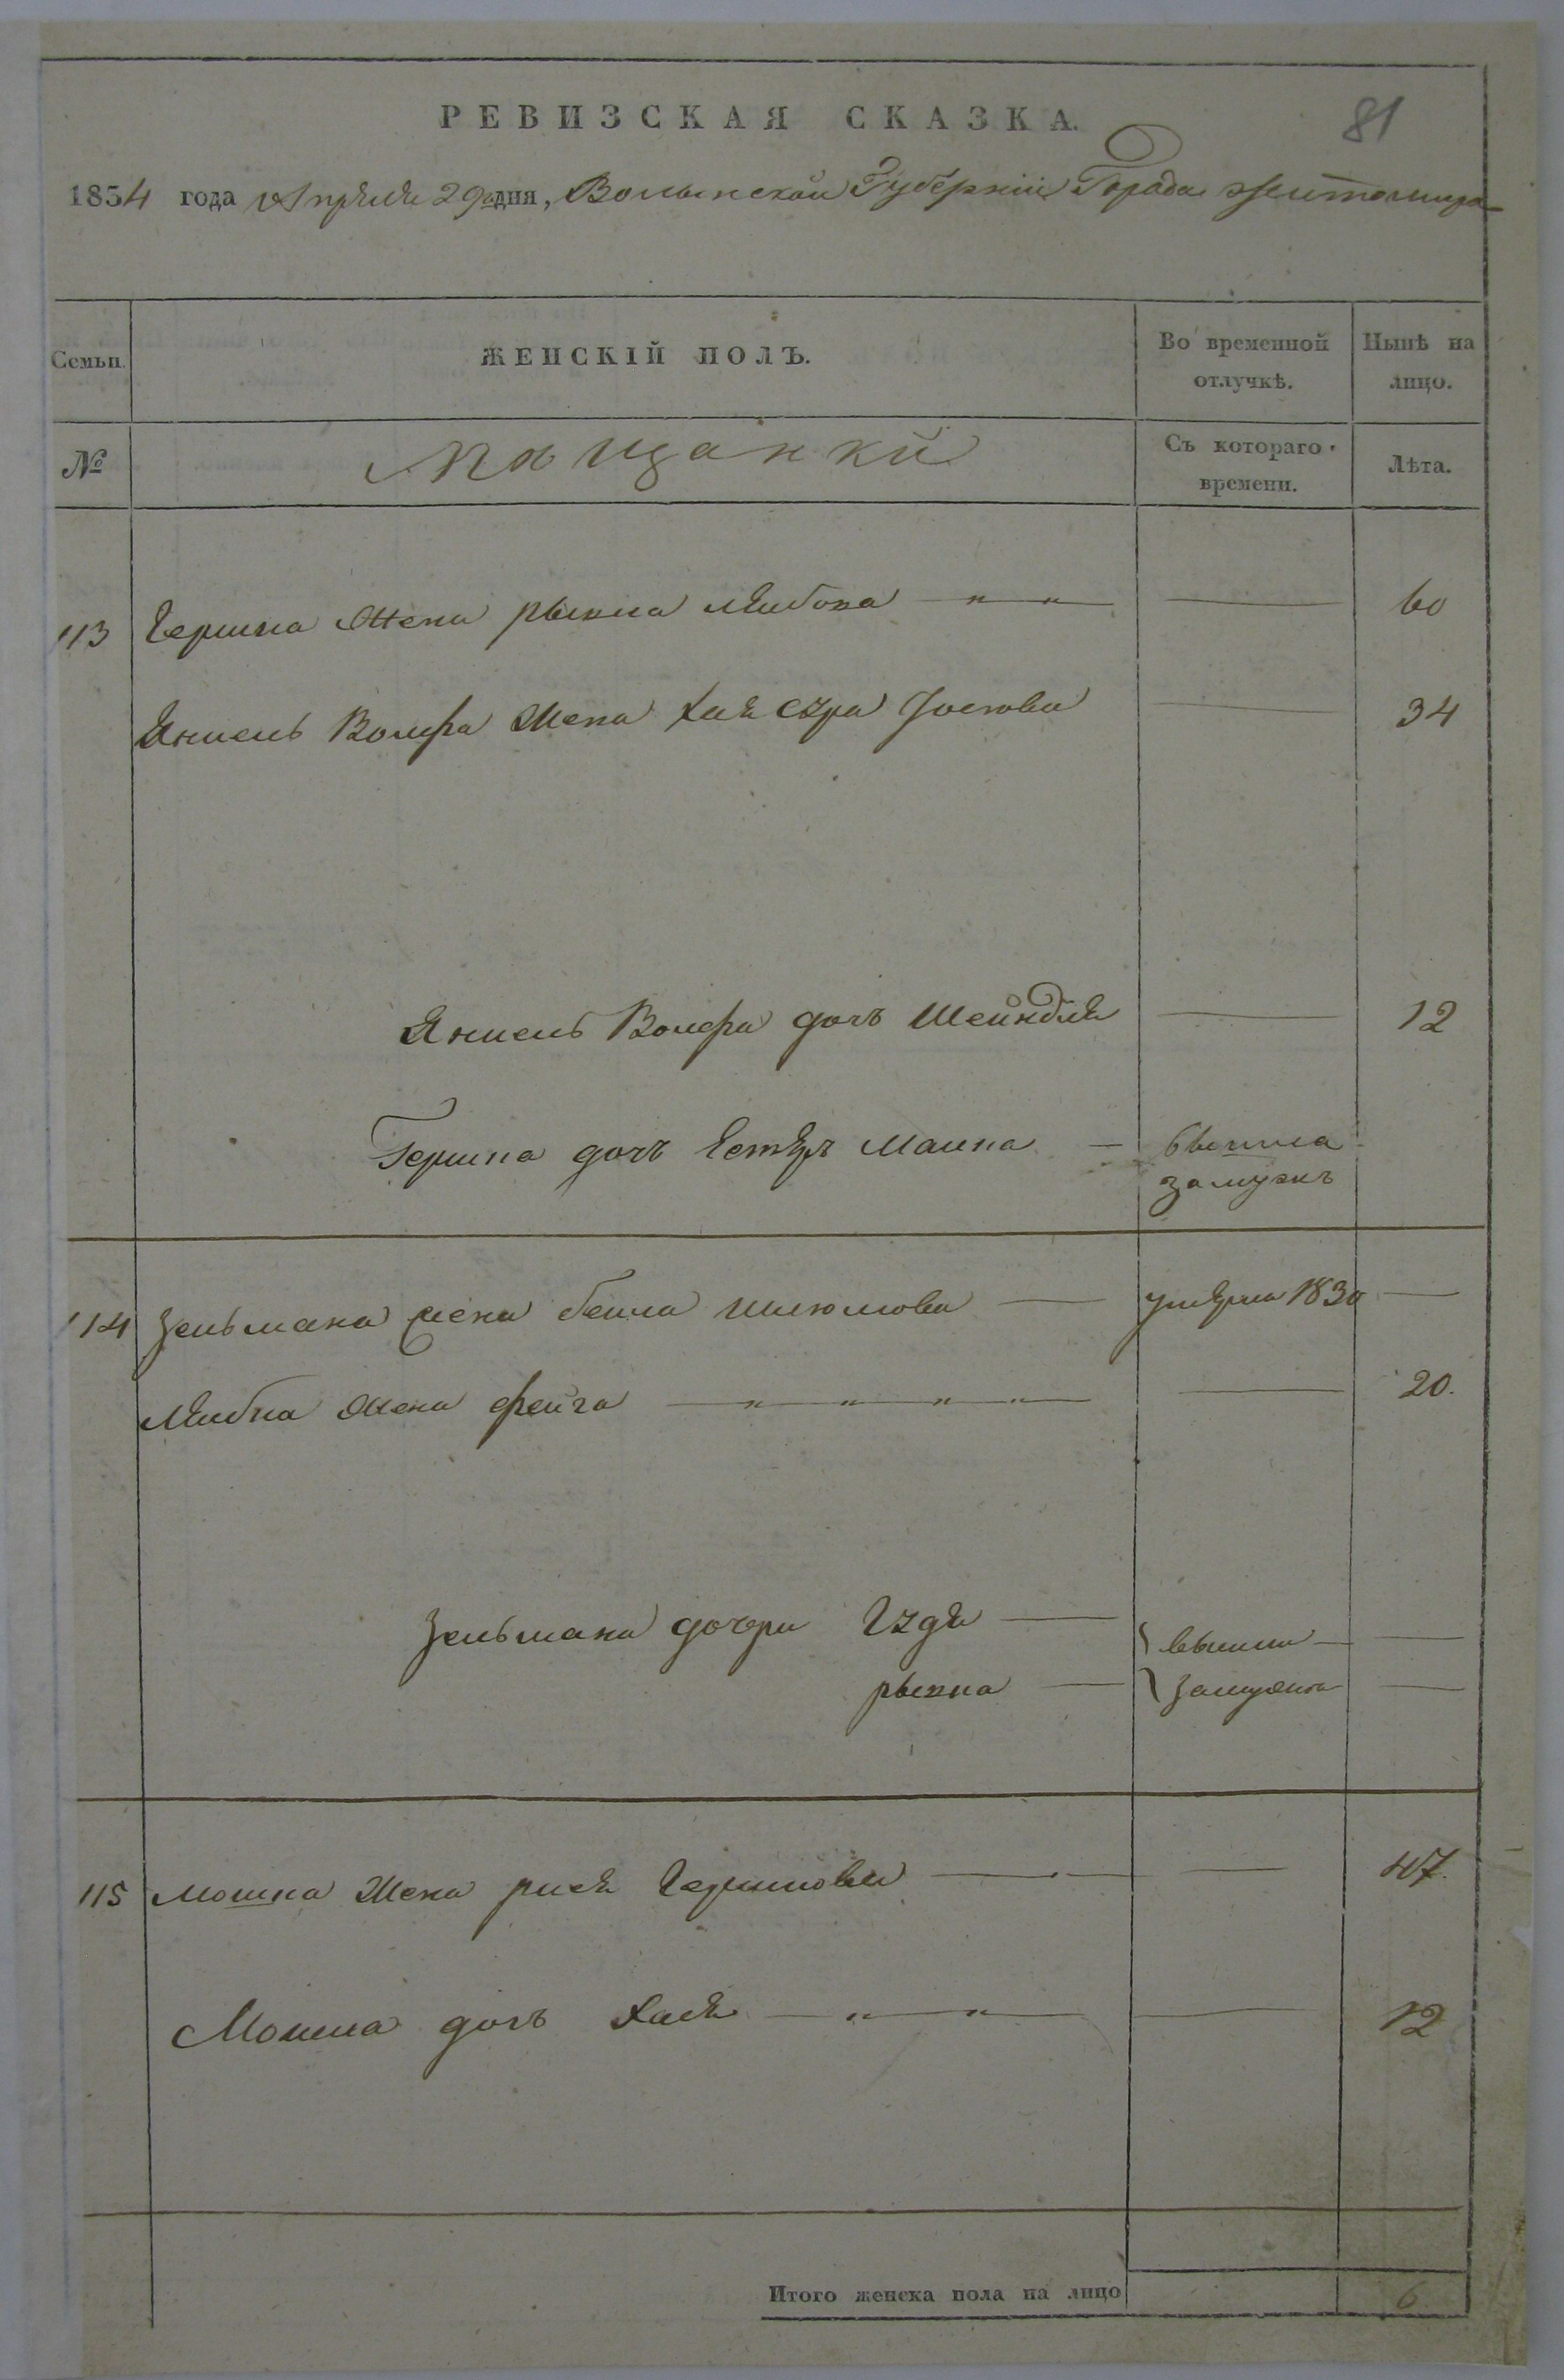 РЕВИЗСКАЯ СКАЗКА.
81
1854 года Апреля 29 дня, Волынской Губерніи Города Житомира
Семьи. ЖЕНСКІЙ ПОЛЪ. Во временной отлучкѣ. Нынѣ на лицо.
№ Мещанки Съ котораго времени. Лѣта.
113 Гершка Жена рыкла Лейбова — " — " — — 60
Янкель Волфа Жена хая сура Іосіова — 34
Янкель Волфа дочъ Шейндля — 12
Гершка дочъ Естеръ Малка — вышла
замужъ
114 Зельмана жена бейла Шлюмова — умерла 1830 —
Лейбка Жена фейга — " — " — " — " — — 20.
Зельмана дочери — вышли — —
рыкла — замужъ —
115 мошка Жена рися Гершкова — — 47.
Мошка дочъ хая — " — " — — 12
Итого женска пола на лицо 6